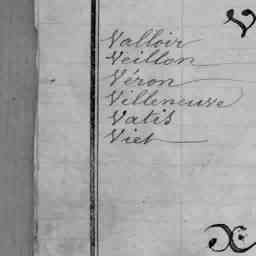 V
Valloir
Veillon
Véron
Villeneuve
Vatis
Viet
X